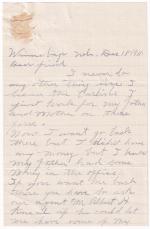 Winnebago Nebr. Dec 18 1911
Dear friend
I never do
any other thing since I
left the Carlisle I
just work for my father
and mother on these
Now I want go back
there but I didn't have
any money but I have
my father have some
Money in the office.
If you want me back
there you have to ask
our agent Mr. Albert H.
Kneale up he could let
me have some of my